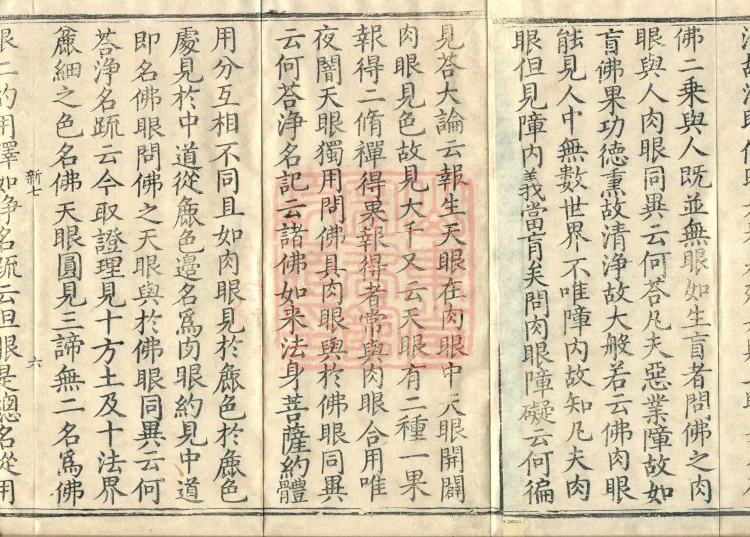 佛二乗與人既並無眼如生盲者問佛之肉
眼與人肉眼同異云何荅凡夫惡業障故如
盲佛果功德熏故清淨故大般若云佛肉眼
能見人中無數世界不唯障內故知凡夫肉
眼但見障內義當盲矣問肉眼障礙云何徧
見荅大論云報生天眼在肉眼中天眼開闢
肉眼見色故見大千又云天眼有二種一果
報得二脩禪得果報得者常與肉眼合用唯
夜闇天眼獨用問佛具肉眼與於佛眼同異
云何荅淨名記云諸佛如来法身菩薩約體
用分互相不同且如肉眼見於麁色於麁色
處見於中道從麁色邊名爲肉眼約見中道
即名佛眼問佛之天眼與於佛眼同異云何
荅淨名䟽云今取證理見十方土及十法界
麁細之色名佛天眼圓見三諦無二名爲佛
新七 六
眼二約用釋如淨名䟽云但眼是總名從用